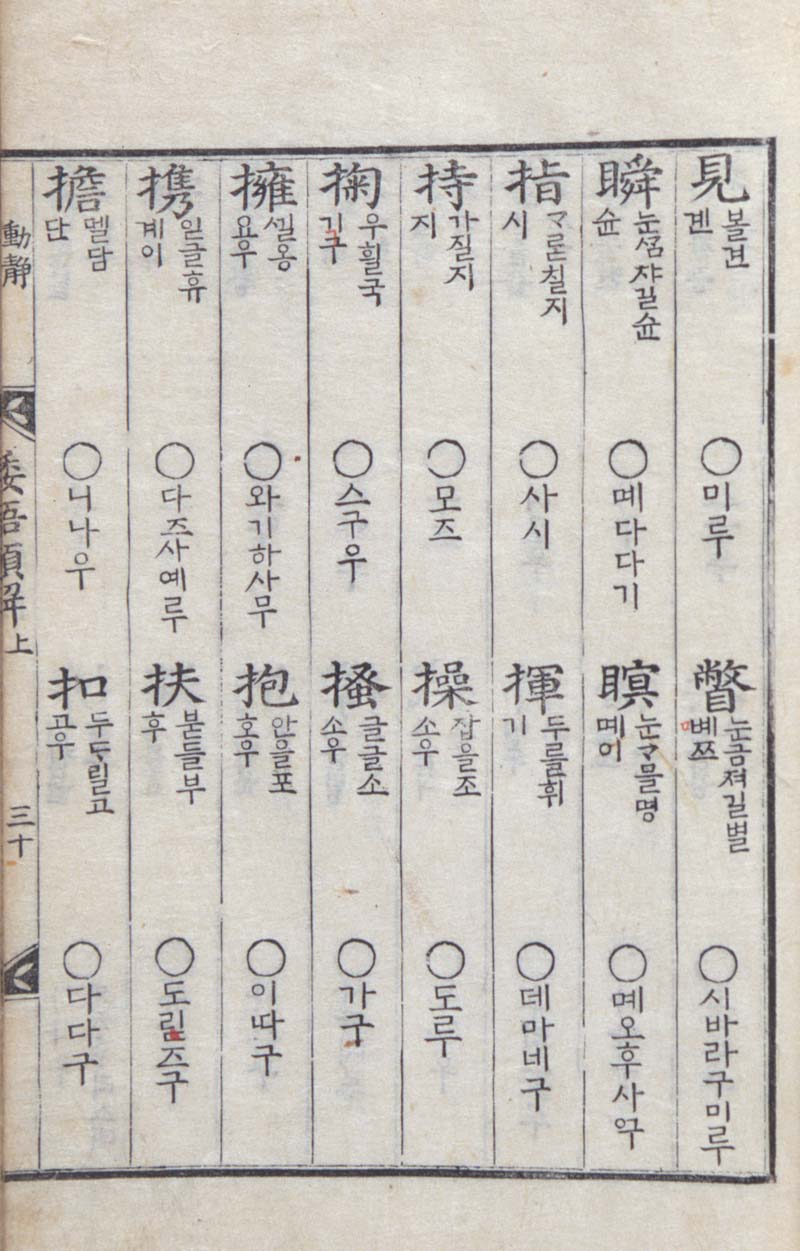 見 볼견 겐 ○미루
瞥 눈금져길별 볘쯔 ○시바라구미루
瞬 눈섬쟈길슌 슌 ○몌다다기
瞑 눈ᄀᆞ믈명 몌이 ○몌오후사구
指 ᄀᆞᄅᆞ칠지 시 ○사시
揮 두르를휘 기 ○데마네구
持 가질지 지 ○모즈
操 잡을조 소우 ○도루
掬 우휠국 기구 ○스구우
搔 글글소 소우 ○가구
擁 ᄭᅵᆯ옹 요우 ○와기하사무
抱 안을포 호우 ○이따구
携 잇글휴 계이 ○다즈사예루
扶 붇들부 후 ○도림즈구
擔 멜담 단 ○니나우
扣 두ᄃᆞ릴고 고우 ○다다구
動靜 倭語類解上 三十